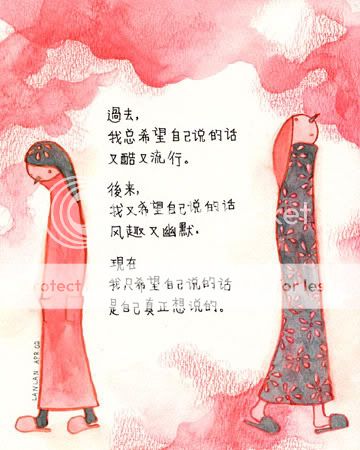 過去,
我总希望自己说的话
又酷又流行。
後来,
我又希望自己说的话
风趣又幽默.
現在
我只希望自己说的话
是自己真正想说的。
LANLAN APR 02